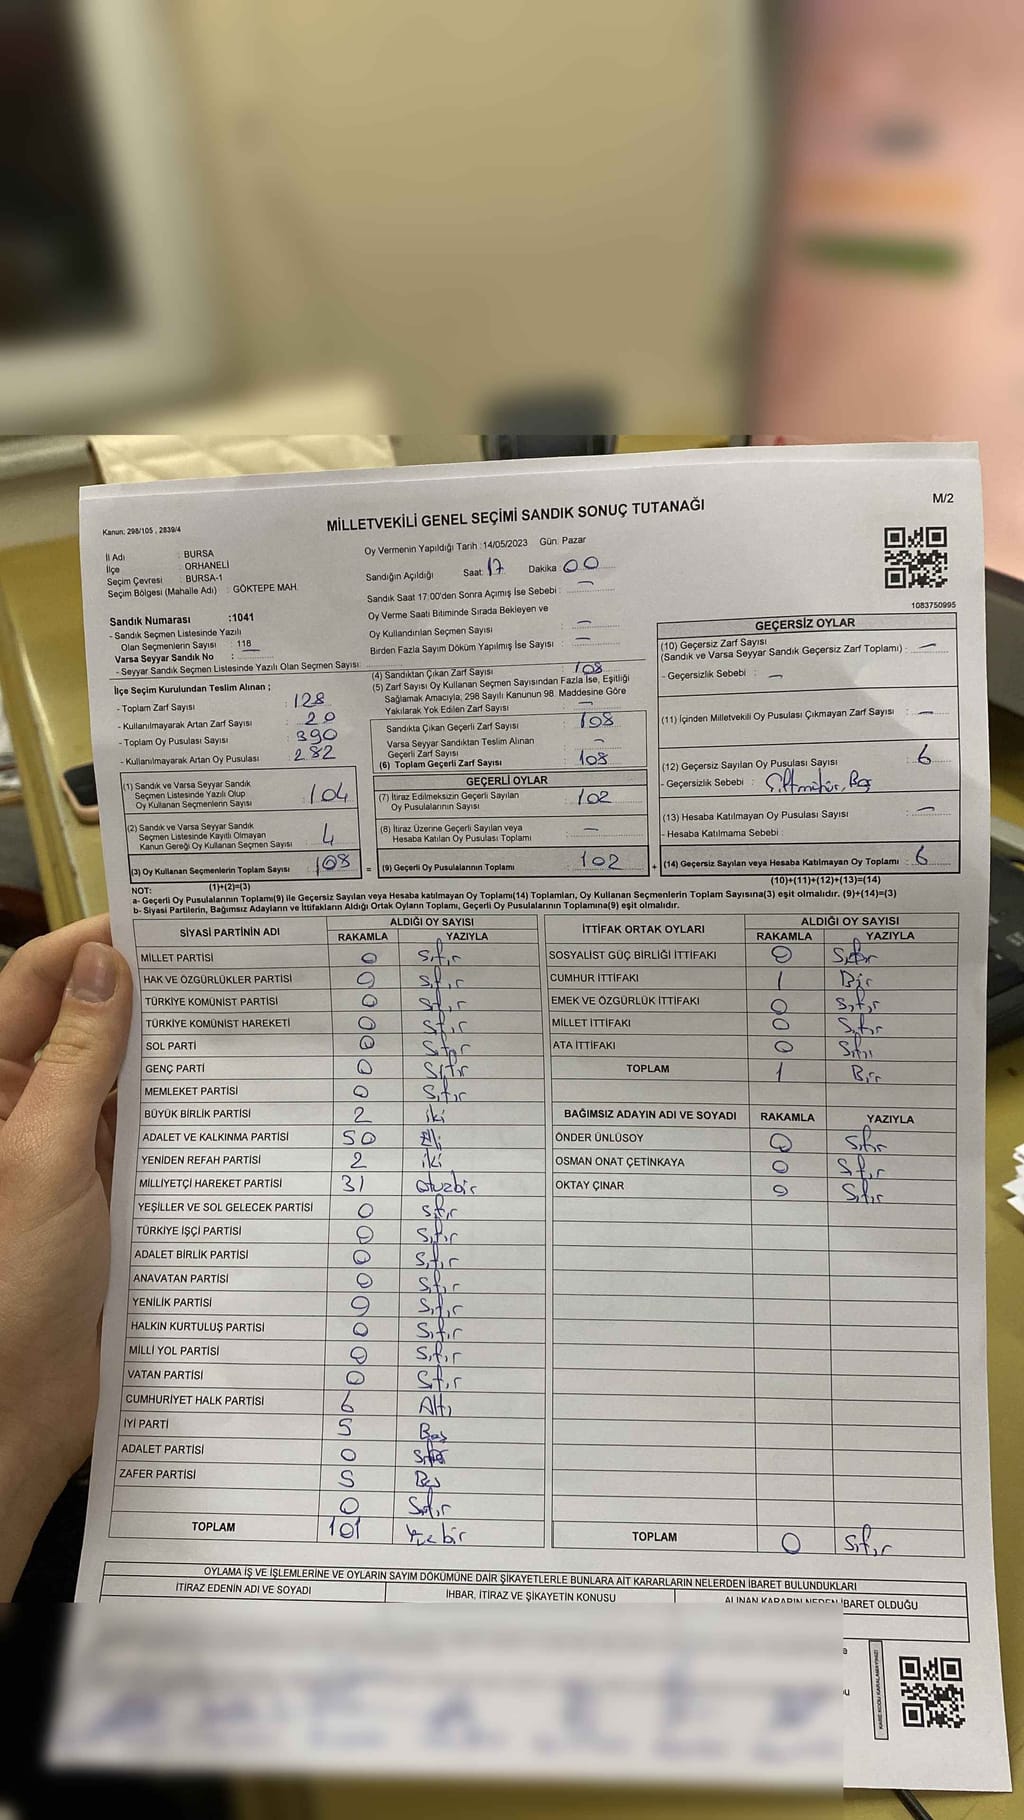 M/2
Kanun: 298/105 , 2839/4
MİLLETVEKİLİ GENEL SEÇİMİ SANDIK SONUÇ TUTANAĞI
İl Adı : BURSA
İlçe : ORHANELİ
Seçim Çevresi : BURSA-1
Seçim Bölgesi (Mahalle Adı) : GÖKTEPE MAH.
Oy Vermenin Yapıldığı Tarih :14/05/2023 Gün: Pazar
Sandığın Açıldığı Saat: 17 Dakika 00
Sandık Saat 17:00'den Sonra Açımış İse Sebebi : –
Oy Verme Saati Bitiminde Sırada Bekleyen ve
Oy Kullandırılan Seçmen Sayısı : –
Birden Fazla Sayım Döküm Yapılmış İse Sayısı : –
1083750995
Sandık Numarası :1041
- Sandık Seçmen Listesinde Yazılı
Olan Seçmenlerin Sayısı : 118
Varsa Seyyar Sandık No : –
- Seyyar Sandık Seçmen Listesinde Yazılı Olan Seçmen Sayısı:
İlçe Seçim Kurulundan Teslim Alınan ;
- Toplam Zarf Sayısı : 128
- Kullanılmayarak Artan Zarf Sayısı : 20
- Toplam Oy Pusulası Sayısı : 390
- Kullanılmayarak Artan Oy Pusulası : 282
(1) Sandık ve Varsa Seyyar Sandık
Seçmen Listesinde Yazılı Olup
Oy Kullanan Seçmenlerin Sayısı : 104
(2) Sandık ve Varsa Seyyar Sandık
Seçmen Listesinde Kayıtlı Olmayan
Kanun Gereği Oy Kullanan Seçmen Sayısı : 4
(3) Oy Kullanan Seçmenlerin Toplam Sayısı : 108
(1)+(2)=(3)
(4) Sandıktan Çıkan Zarf Sayısı : 108
(5) Zarf Sayısı Oy Kullanan Seçmen Sayısından Fazla İse, Eşitliği
Sağlamak Amacıyla, 298 Sayılı Kanunun 98. Maddesine Göre
Yakılarak Yok Edilen Zarf Sayısı : –
Sandıkta Çıkan Geçerli Zarf Sayısı : 108
Varsa Seyyar Sandıktan Teslim Alınan
Geçerli Zarf Sayısı : –
(6) Toplam Geçerli Zarf Sayısı : 108
GEÇERLİ OYLAR
(7) İtiraz Edilmeksizin Geçerli Sayılan
Oy Pusulalarının Sayısı : 102
(8) İtiraz Üzerine Geçerli Sayılan veya
Hesaba Katılan Oy Pusulası Toplamı : –
= (9) Geçerli Oy Pusulalarının Toplamı : 102
GEÇERSİZ OYLAR
(10) Geçersiz Zarf Sayısı
(Sandık ve Varsa Seyyar Sandık Geçersiz Zarf Toplamı) : –
- Geçersizlik Sebebi : –
(11) İçinden Milletvekili Oy Pusulası Çıkmayan Zarf Sayısı : –
(12) Geçersiz Sayılan Oy Pusulası Sayısı : 6
- Geçersizlik Sebebi : Çift mühür, Boş
(13) Hesaba Katılmayan Oy Pusulası Sayısı : –
- Hesaba Katılmama Sebebi :
+ (14) Geçersiz Sayılan veya Hesaba Katılmayan Oy Toplamı : 6
(10)+(11)+(12)+(13)=(14)
NOT:
a- Geçerli Oy Pusulalarının Toplamı(9) ile Geçersiz Sayılan veya Hesaba katılmayan Oy Toplamı(14) Toplamları, Oy Kullanan Seçmenlerin Toplam Sayısına(3) eşit olmalıdır. (9)+(14)=(3)
b- Siyasi Partilerin, Bağımsız Adayların ve İttifakların Aldığı Ortak Oyların Toplamı, Geçerli Oy Pusulalarının Toplamına(9) eşit olmalıdır.
SİYASİ PARTİNİN ADI ALDIĞI OY SAYISI
RAKAMLA YAZIYLA
MİLLET PARTİSİ 0 Sıfır
HAK VE ÖZGÜRLÜKLER PARTİSİ 0 Sıfır
TÜRKİYE KOMÜNİST PARTİSİ 0 Sıfır
TÜRKİYE KOMÜNİST HAREKETİ 0 Sıfır
SOL PARTİ 0 Sıfır
GENÇ PARTİ 0 Sıfır
MEMLEKET PARTİSİ 0 Sıfır
BÜYÜK BİRLİK PARTİSİ 2 iki
ADALET VE KALKINMA PARTİSİ 50 Elli
YENİDEN REFAH PARTİSİ 2 iki
MİLLİYETÇİ HAREKET PARTİSİ 31 Otuzbir
YEŞİLLER VE SOL GELECEK PARTİSİ 0 Sıfır
TÜRKİYE İŞÇİ PARTİSİ 0 Sıfır
ADALET BİRLİK PARTİSİ 0 Sıfır
ANAVATAN PARTİSİ 0 Sıfır
YENİLİK PARTİSİ 0 Sıfır
HALKIN KURTULUŞ PARTİSİ 0 Sıfır
MİLLİ YOL PARTİSİ 0 Sıfır
VATAN PARTİSİ 0 Sıfır
CUMHURİYET HALK PARTİSİ 6 Altı
İYİ PARTİ 5 Beş
ADALET PARTİSİ 0 Sıfır
ZAFER PARTİSİ 5 Beş
0 Sıfır
TOPLAM 101 Yüzbir
İTTİFAK ORTAK OYLARI ALDIĞI OY SAYISI
RAKAMLA YAZIYLA
SOSYALİST GÜÇ BİRLİĞİ İTTİFAKI 0 Sıfır
CUMHUR İTTİFAKI 1 Bir
EMEK VE ÖZGÜRLÜK İTTİFAKI 0 Sıfır
MİLLET İTTİFAKI 0 Sıfır
ATA İTTİFAKI 0 Sıfır
TOPLAM 1 Bir
BAĞIMSIZ ADAYIN ADI VE SOYADI RAKAMLA YAZIYLA
ÖNDER ÜNLÜSOY 0 Sıfır
OSMAN ONAT ÇETİNKAYA 0 Sıfır
OKTAY ÇINAR 0 Sıfır
TOPLAM 0 Sıfır
OYLAMA İŞ VE İŞLEMLERİNE VE OYLARIN SAYIM DÖKÜMÜNE DAİR ŞİKAYETLERLE BUNLARA AİT KARARLARIN NELERDEN İBARET BULUNDUKLARI
İTİRAZ EDENİN ADI VE SOYADI İHBAR, İTİRAZ VE ŞİKAYETİN KONUSU ALINAN KARARIN NEDEN İBARET OLDUĞU
KARE KODU KARALAMAYINIZ!